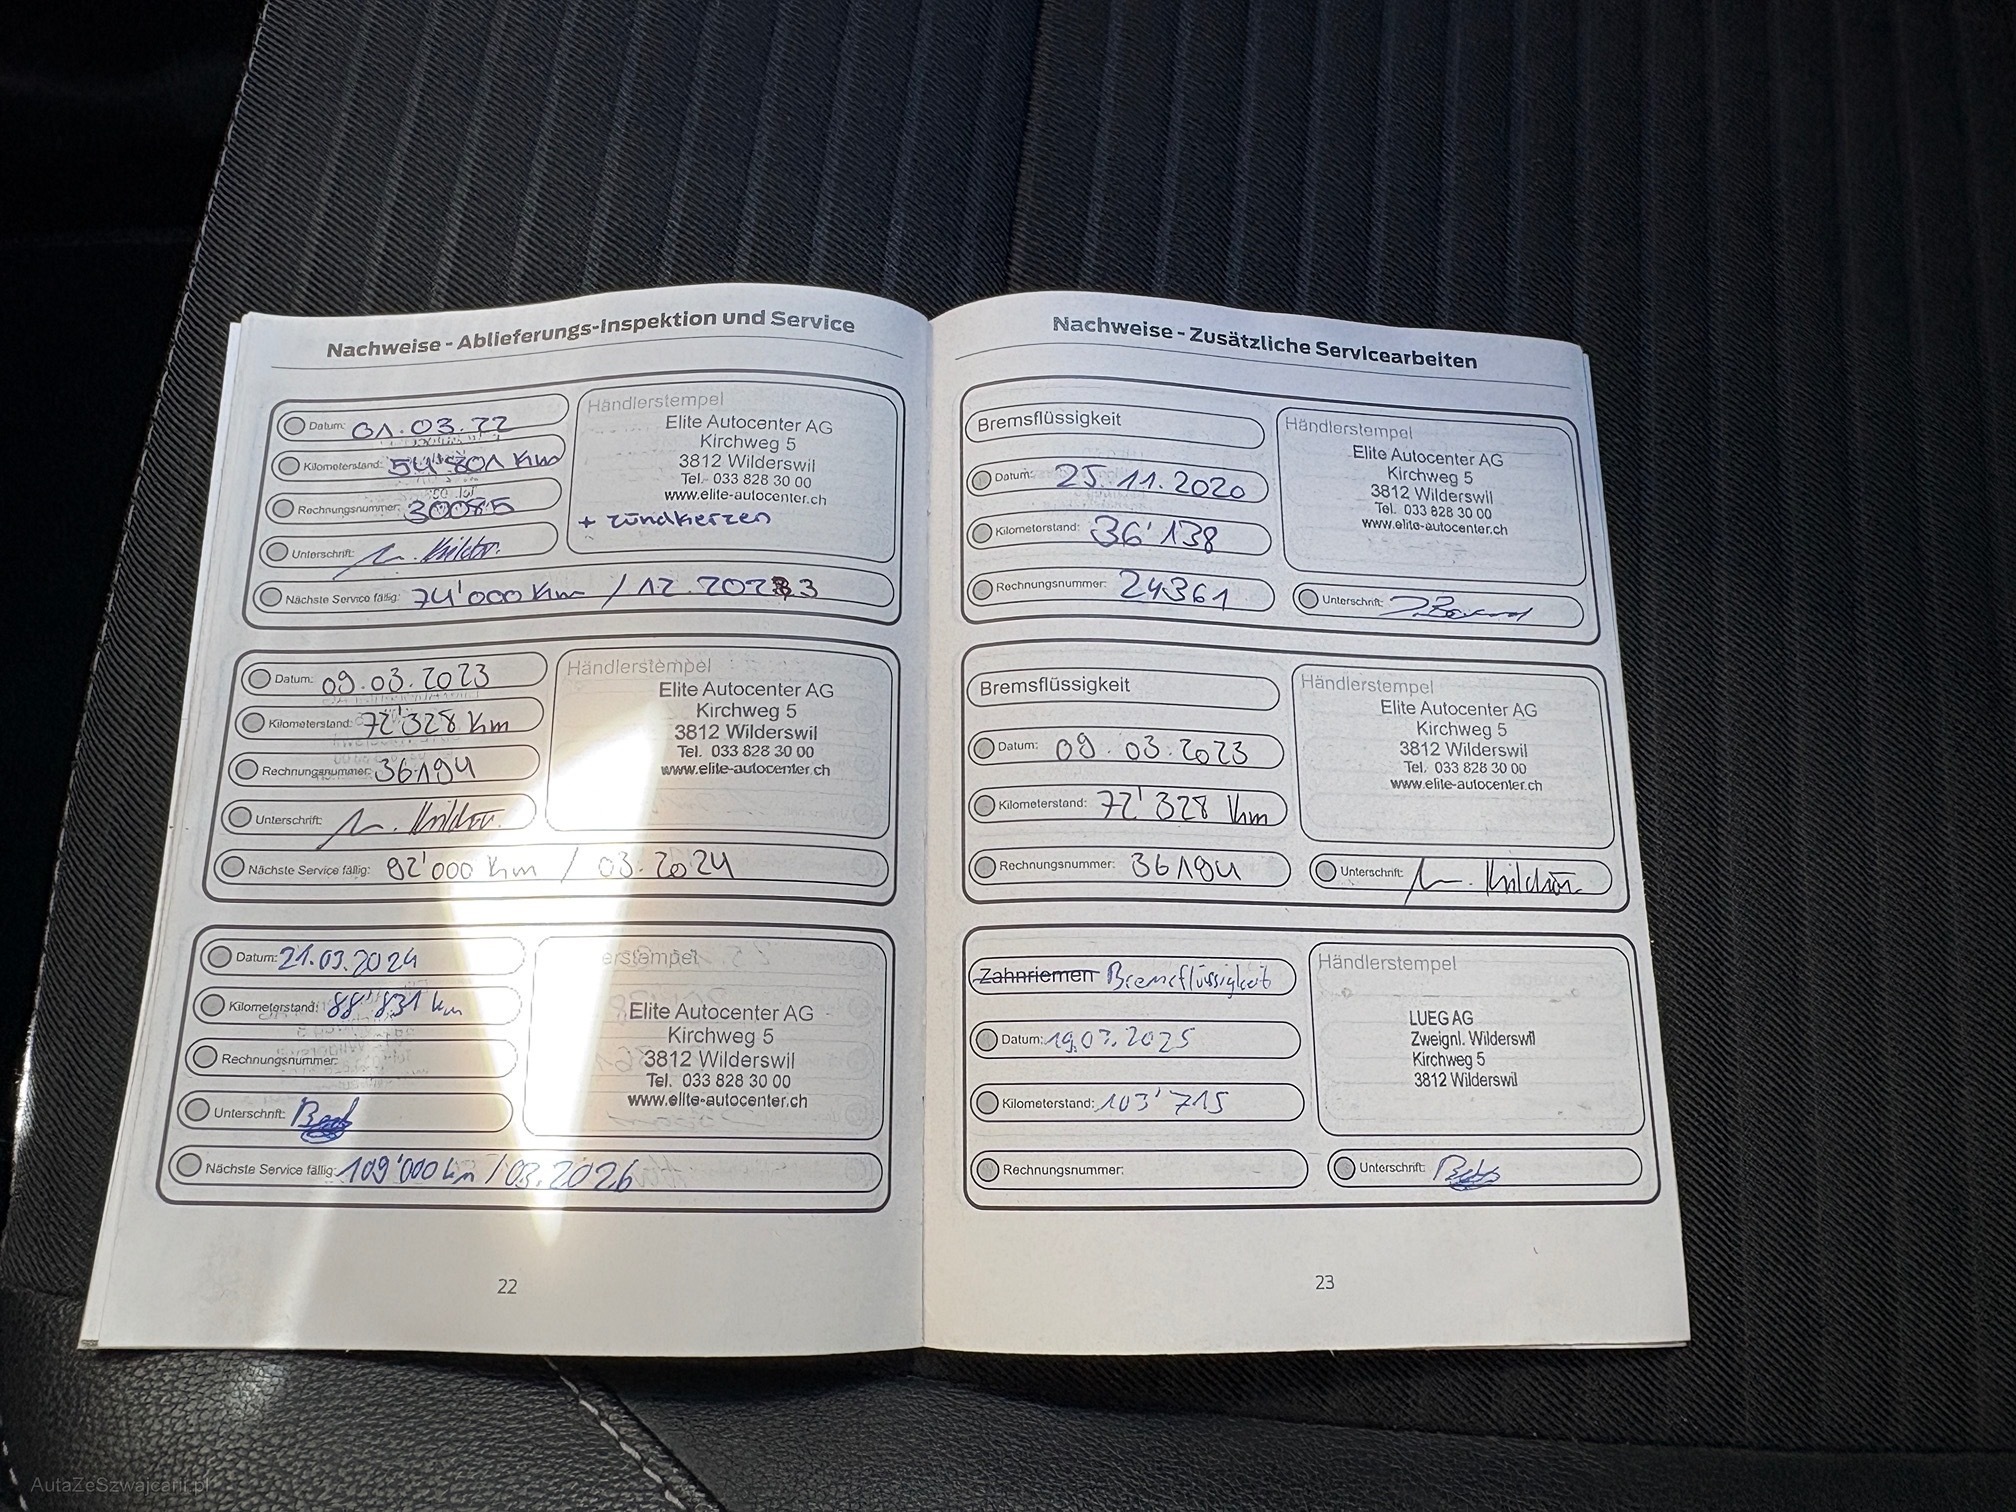 Nachweise - Ablieferungs-Inspektion und Service
Datum: 01.03.22
Kilometerstand: 54'801 Km
Rechnungsnummer: 30085
Unterschrift:
Nächste Service fällig: 74'000 Km / 12.2023
Händlerstempel
Elite Autocenter AG
Kirchweg 5
3812 Wilderswil
Tel. 033 828 30 00
www.elite-autocenter.ch
+ zündkerzen
Datum: 09.03.2023
Kilometerstand: 72'328 Km
Rechnungsnummer: 36194
Unterschrift:
Nächste Service fällig: 92'000 Km / 03.2024
Händlerstempel
Elite Autocenter AG
Kirchweg 5
3812 Wilderswil
Tel. 033 828 30 00
www.elite-autocenter.ch
Datum: 21.03.2024
Kilometerstand: 88'831 km
Rechnungsnummer:
Unterschrift:
Nächste Service fällig: 109'000 km / 03.2026
erstempel
Elite Autocenter AG
Kirchweg 5
3812 Wilderswil
Tel. 033 828 30 00
www.elite-autocenter.ch
22
Nachweise - Zusätzliche Servicearbeiten
Bremsflüssigkeit
Datum: 25.11.2020
Kilometerstand: 36'138
Rechnungsnummer: 24361
Händlerstempel
Elite Autocenter AG
Kirchweg 5
3812 Wilderswil
Tel. 033 828 30 00
www.elite-autocenter.ch
Unterschrift:
Bremsflüssigkeit
Datum: 09.03.2023
Kilometerstand: 72'328 Km
Rechnungsnummer: 36194
Händlerstempel
Elite Autocenter AG
Kirchweg 5
3812 Wilderswil
Tel. 033 828 30 00
www.elite-autocenter.ch
Unterschrift:
Zahnriemen Bremsflüssigkeit
Datum: 19.03.2025
Kilometerstand: 103'715
Rechnungsnummer:
Händlerstempel
LUEG AG
Zweignl. Wilderswil
Kirchweg 5
3812 Wilderswil
Unterschrift:
23
AutaZeSzwajcarii.pl